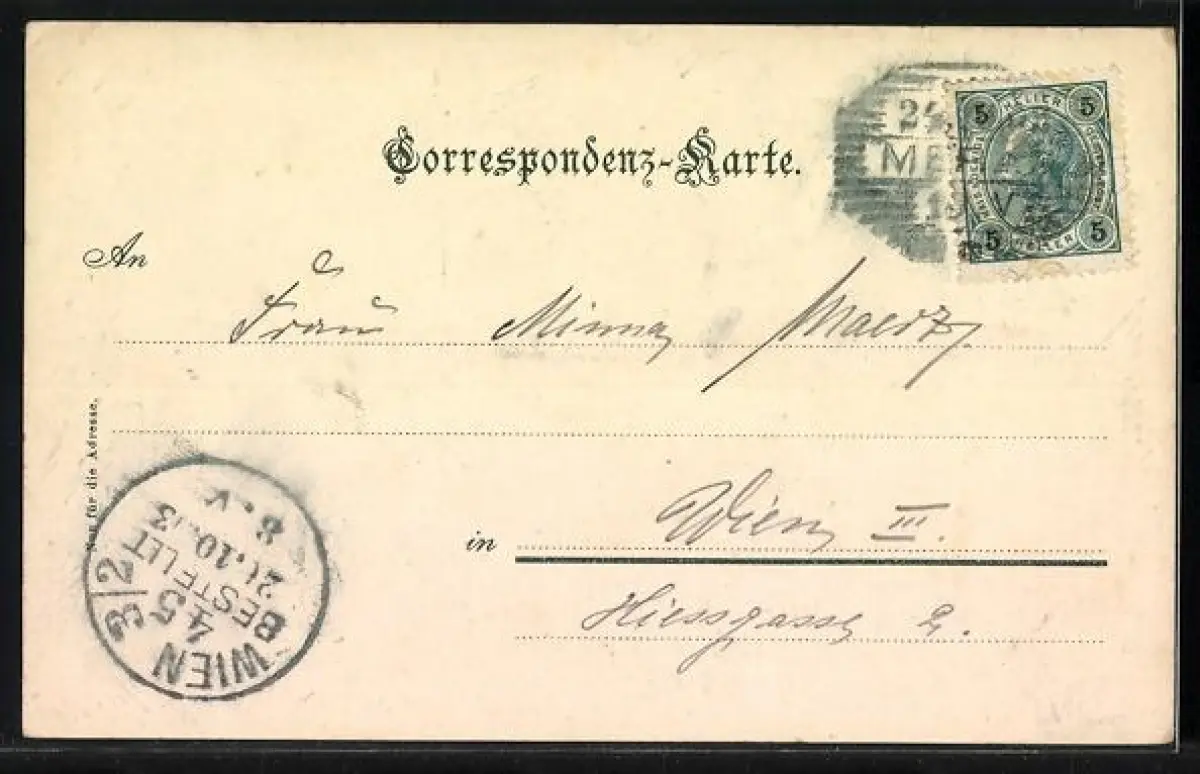 Correspondenz-Karte.
5 HELLER 5
5 HELLER 5
24
ME
V
An
Frau Minna Maerz
Nur für die Adresse.
in Wien III.
Hiessgasse 2.
WIEN 3/2
45
BESTELLT
10
8.V